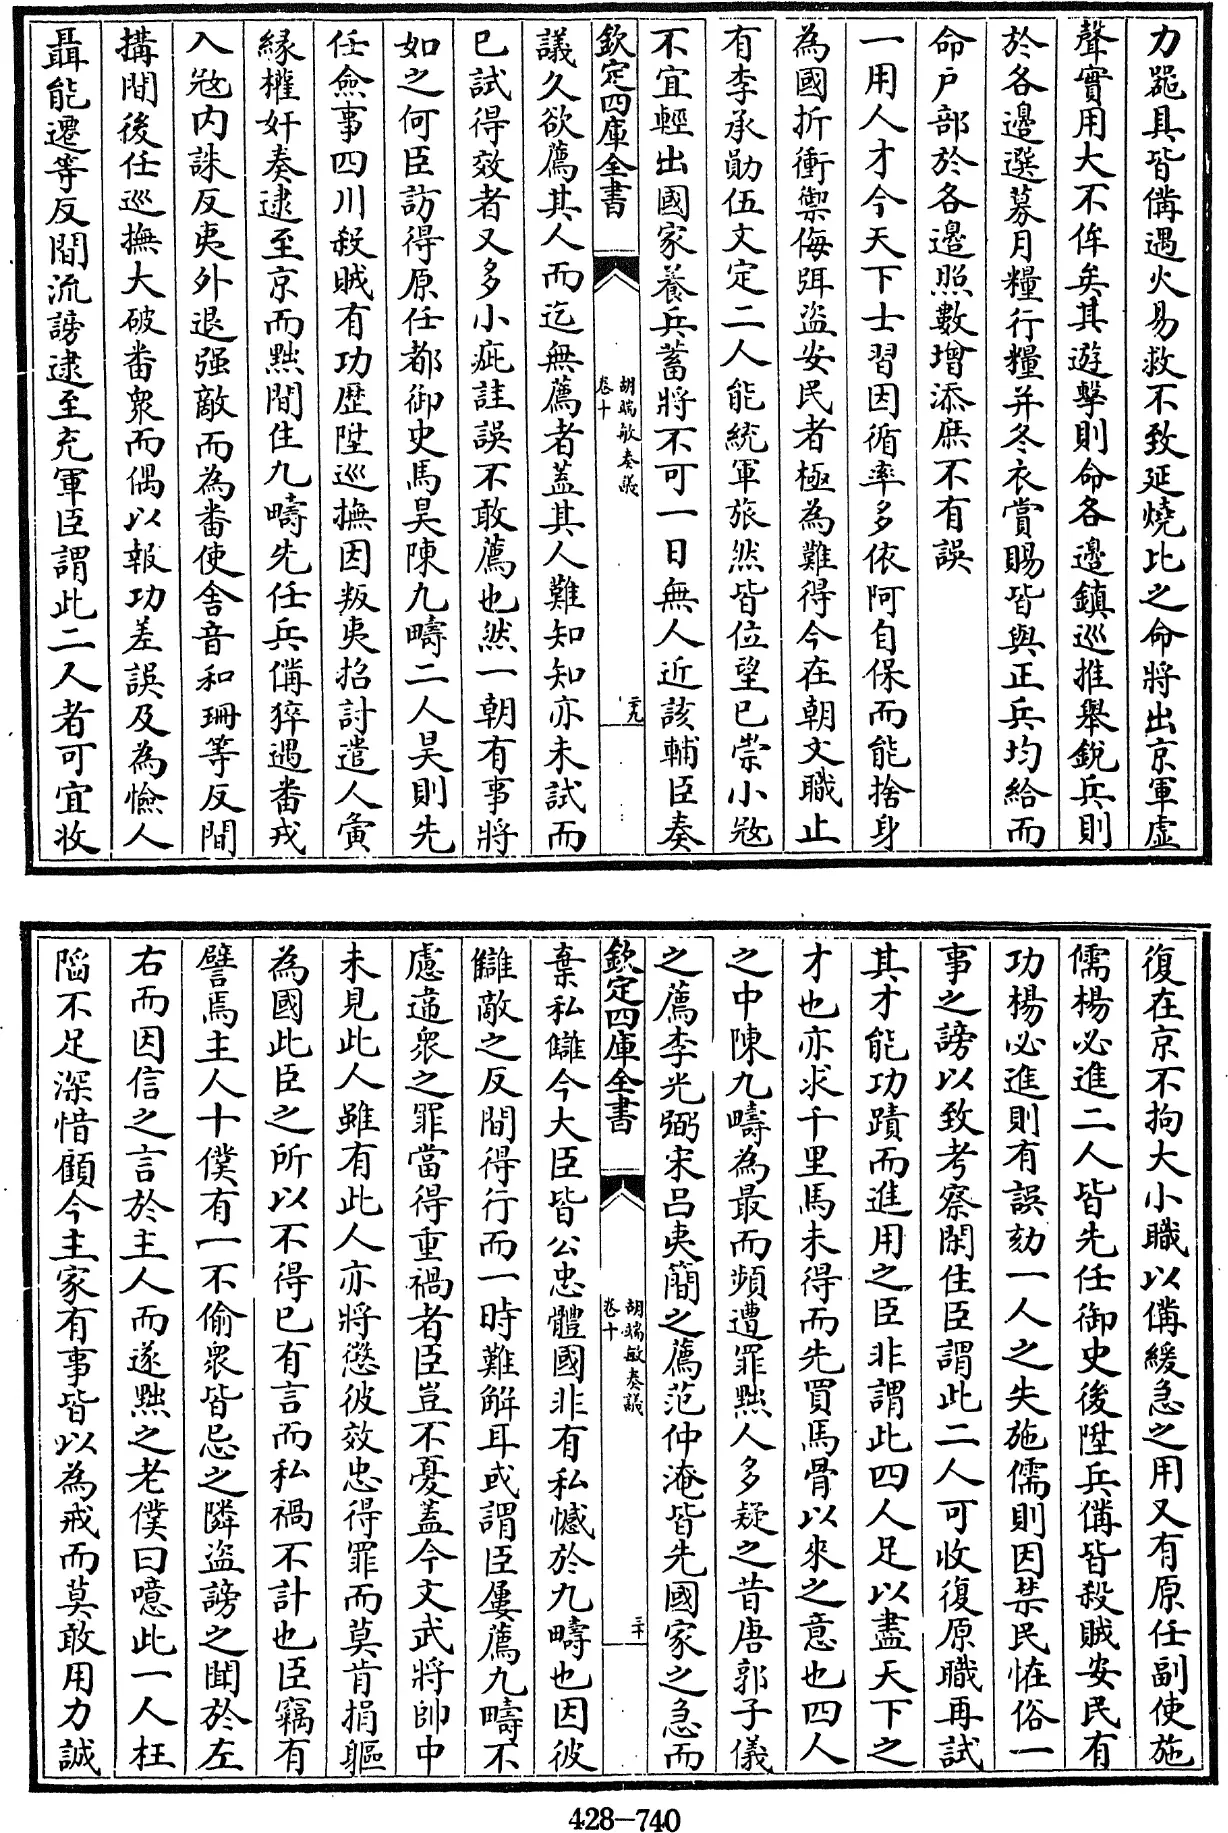 力器具皆備遇火易救不致延燒比之命將出京軍虛
聲實用大不侔矣其遊擊則命各邊鎮巡推舉銳兵則
於各邊選募月糧行糧并冬衣賞賜皆與正兵均給而
命户部於各邊照數增添庶不有誤
一用人才今天下士習因循率多依阿自保而能捨身
為國折衝禦侮弭盜安民者極為難得今在朝文職止
有李承勛伍文定二人能統軍旅然皆位望已崇小㓂
不宜輕出國家養兵蓄將不可一日無人近該輔臣奏
欽定四庫全書
胡端敏奏議
卷十
二九
議久欲薦其人而迄無薦者蓋其人難知知亦未試而
已試得效者又多小疵詿誤不敢薦也然一朝有事將
如之何臣訪得原任都御史馬昊陳九疇二人昊則先
任僉事四川殺賊有功歷陞巡撫因叛夷招討遣人夤
緣權奸奏逮至京而黜閒住九疇先任兵備猝遇畨戎
入㓂内誅反夷外退强敵而為畨使舍音和珊等反間
搆閒後任巡撫大破畨衆而偶以報功差誤及為憸人
聶能遷等反間流謗逮至充軍臣謂此二人者可宜收
復在京不拘大小職以備緩急之用又有原任副使施
儒楊必進二人皆先任御史後陞兵備皆殺賊安民有
功楊必進則有誤劾一人之失施儒則因禁民怪俗一
事之謗以致考察閑住臣謂此二人可收復原職再試
其才能功蹟而進用之臣非謂此四人足以盡天下之
才也亦求千里馬未得而先買馬骨以來之意也四人
之中陳九疇為最而頻遭罪黜人多疑之昔唐郭子儀
之薦李光弼宋吕夷簡之薦范仲淹皆先國家之急而
欽定四庫全書
胡端敏奏議
卷十
三十
棄私讎今大臣皆公忠體國非有私憾於九疇也因彼
讎敵之反間得行而一時難解耳或謂臣屢薦九疇不
慮違衆之罪當得重禍者臣豈不憂蓋今文武將帥中
未見此人雖有此人亦將懲彼效忠得罪而莫肯捐軀
為國此臣之所以不得已有言而私禍不計也臣竊有
譬焉主人十僕有一不偷衆皆忌之隣盜謗之聞於左
右而因信之言於主人而遂黜之老僕曰噫此一人枉
陷不足深惜顧今主家有事皆以為戒而莫敢用力誠
428—740